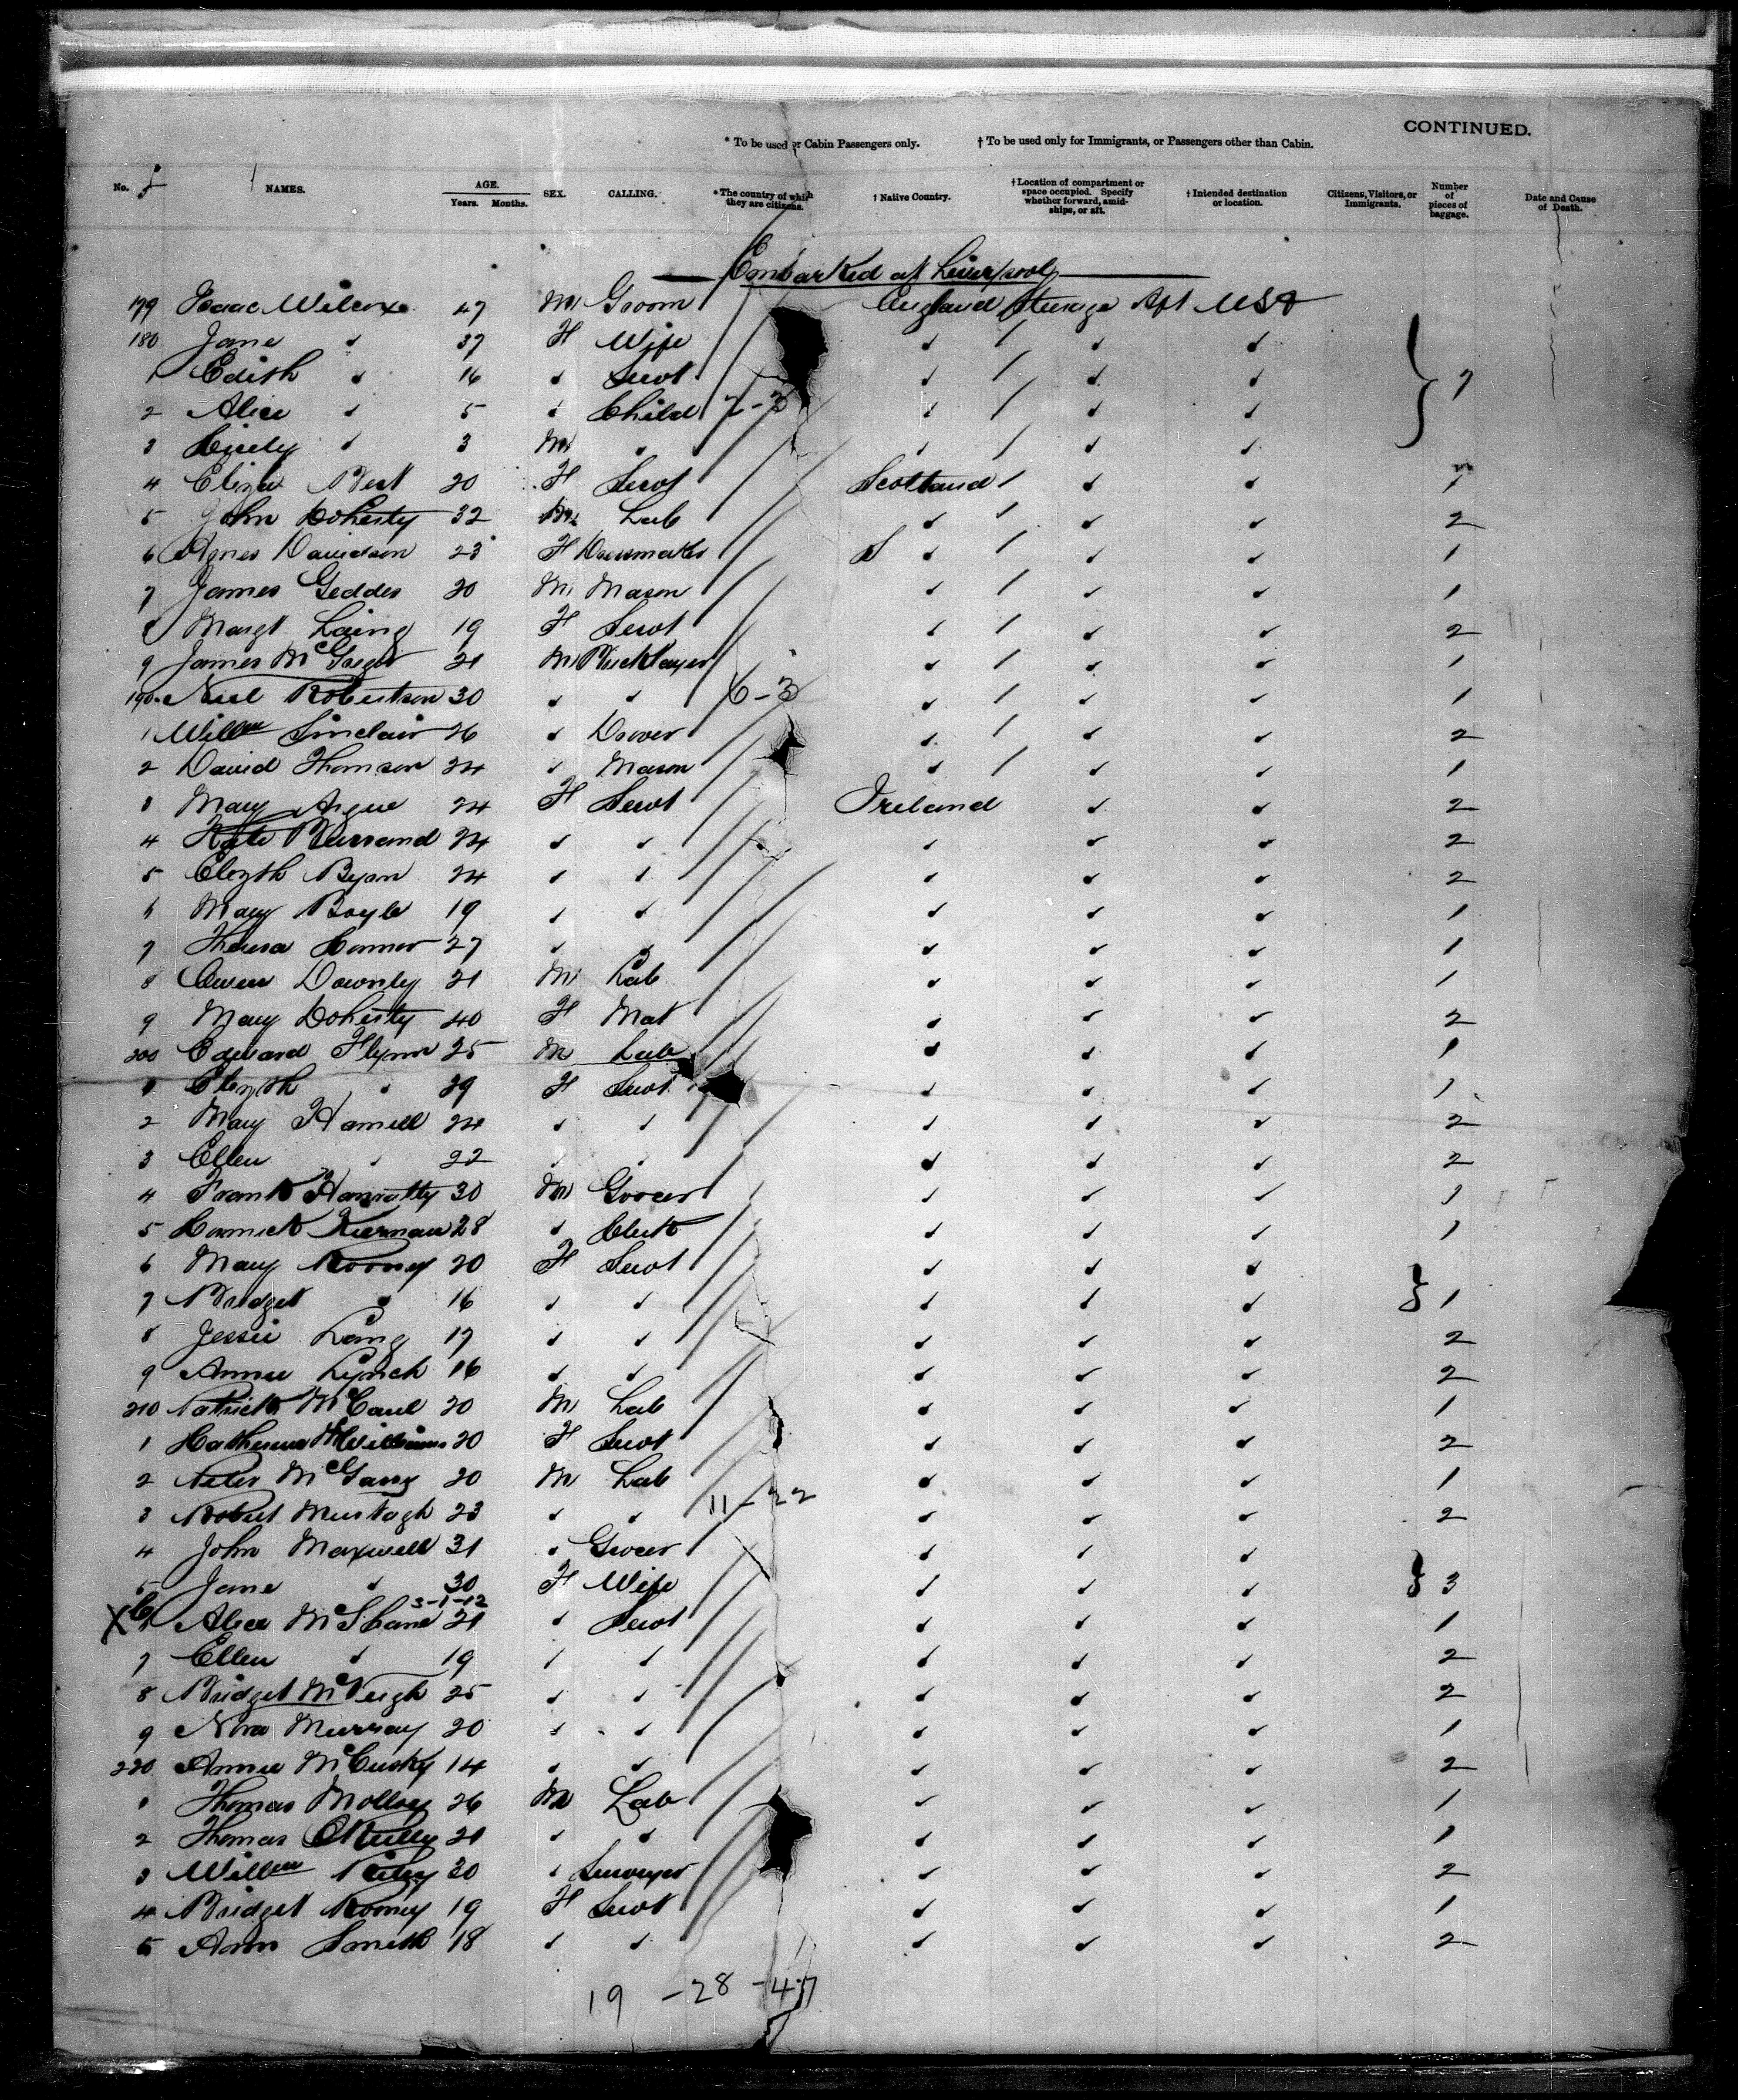 CONTINUED.
* To be used or Cabin Passengers only. † To be used only for Immigrants, or Passengers other than Cabin.
No. NAMES. AGE. Years. Months. SEX. CALLING. * The country of which they are citizens. † Native Country. † Location of compartment or space occupied. Specify whether forward, amidships, or aft. † Intended destination or location. Citizens, Visitors, or Immigrants. Number of pieces of baggage. Date and Cause of Death.
Embarked at Liverpool
179 Isaac Wilcox 47 M Groom England Steerage Aft USA
180 Jane " 37 F Wife " " "
1 Edith " 16 " Servt " " " } 7
2 Alice " 5 " Child 2-3 " " "
3 " 3 M " " " "
4 Eliza Best 20 F Servt Scotland " " 1
5 John Doherty 32 M Lab " " " 2
6 Agnes Davidson 23 F Dressmaker " " " 1
7 James Geddes 20 M Mason " " " 1
8 Margt Laing 19 F Servt " " " 2
9 James McGregor 21 M Bricklayer " " " 1
190 Neil Robertson 30 " " 6-3 " " " 1
1 Willm Sinclair 26 " Drover " " " 2
2 David Thomson 24 " Mason " " " 1
3 Mary Argue 24 F Servt Ireland " " 2
4 Kate 24 " " " " " 2
5 Elizth Ryan 24 " " " " " 2
6 Mary Boyle 19 " " " " " 1
7 Theresa Connor 27 " " " " " 1
8 Owen Downley 21 M Lab " " " 1
9 Mary Doherty 40 F Mat " " " 2
200 Edward Flynn 25 M Lab " " " 1
1 Elizth " 29 F Servt " " " 1
2 Mary Hamill 24 " " " " " 2
3 Ellen " 22 " " " " " 2
4 Frank Hanratty 30 M Grocer " " " 1
5 Cormick Kiernan 28 " Clerk " " " 1
6 Mary Rooney 20 F Servt " " "
7 Bridget " 16 " " " " " } 1
8 Jessie Lang 17 " " " " " 2
9 Annie Lynch 16 " " " " " 2
210 Patrick McCaul 20 M Lab " " " 1
1 Catherine McWilliams 20 F Servt " " " 2
2 Peter McGarry 20 M Lab " " " 1
3 Robert Murtagh 23 " " 11-22 " " " 2
4 John Maxwell 31 " Grocer " " "
5 Jane " 30 F Wife " " " } 3
3-1-12
X 6 Alice McShane 21 " Servt " " " 1
7 Ellen " 19 " " " " " 2
8 Bridget McVeigh 25 " " " " " 2
9 Nora Murray 20 " " " " " 1
220 Annie McCusky 14 " " " " " 2
1 Thomas Molloy 26 M Lab " " " 1
2 Thomas OReilly 21 " " " " " 1
3 Willm Riley 30 " Surveyor " " " 2
4 Bridget Rooney 19 F Servt " " " 1
5 Ann Smith 18 " " " " " 2
19 - 28 - 47